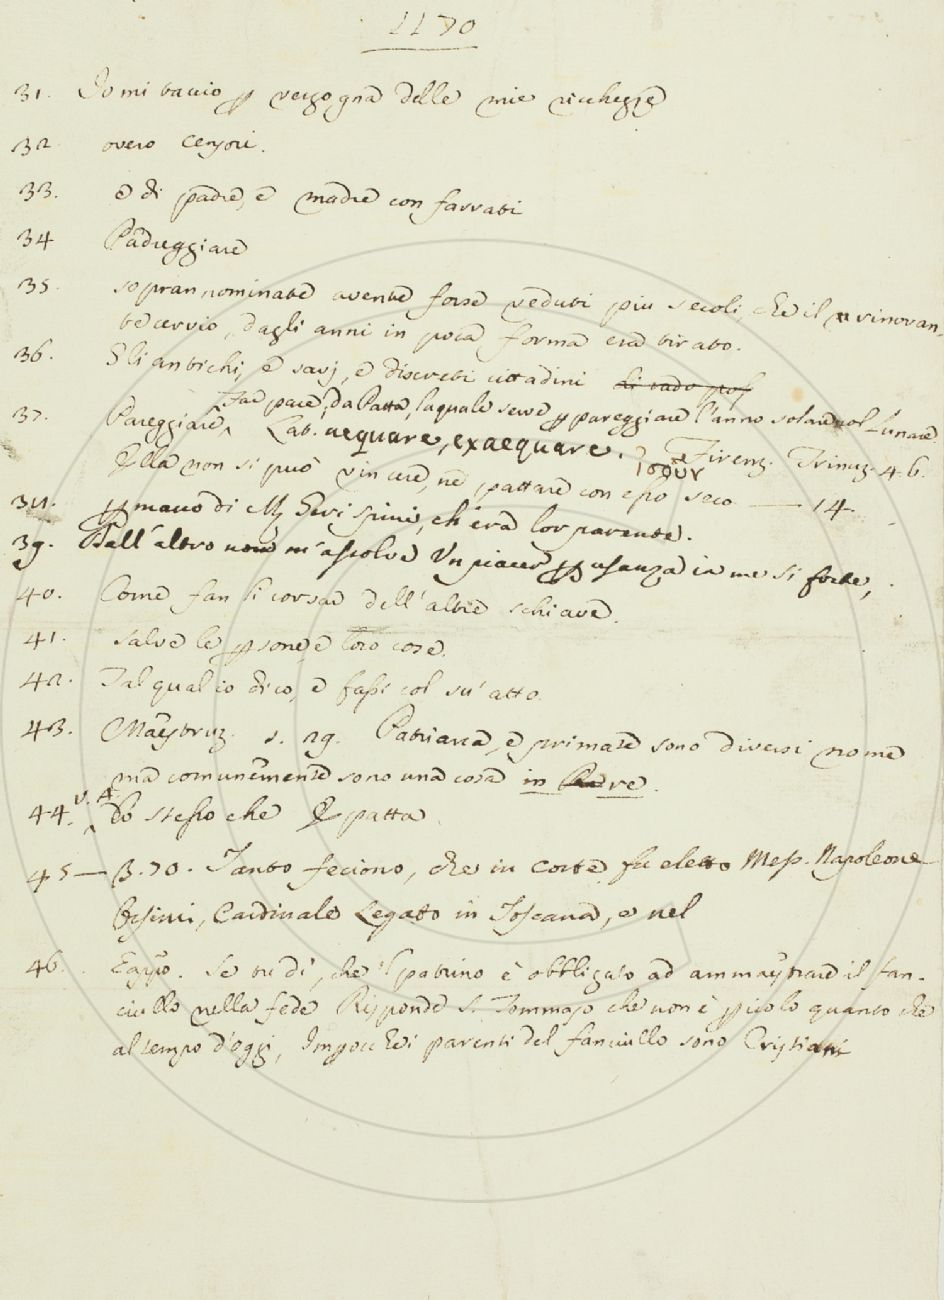 1170
31. Io mi taccio p vergogna delle mie richezze
32. overo Censori.
33. e di padre, e madre con farrati
34 Padreggiare
35. soprannominate avente forse veduti piu secoli, che il rinovan-
te cervio, dagli anni in poca forma era tirato.
36. Gli antichi, e savj, e discreti cittadini
far pace, da Patta, laquale serve p pareggiare l'anno solare col Lunare
37. Pareggiare, Lat. aequare, exaequare. Firenz. Trinuz. 4. 6.
Ella non si può vincere, ne pattare con esso seco — 14.
38. p mano di M Geri Spini, ch'era lor parente.
39. Dall'altro non m'assolve Un piacer p usanza in me si forte,
40. Come fan li corsar dell'altre schiave.
41. salve le psone, e loro cose.
42. Tal qual io dico, e fassi col su' atto.
43. Maestruz. s. 29. Patriarca, e primate sono diversi nome
ma comunemente sono una cosa in re.
44. v. A. Lo stesso che Epatta
45 — B. 70. Tanto feciono, che in Corte fu eletto Mess. Napoleone
Orsini, Cardinale Legato in Toscana, e nel
46. Espo. Se tu di', che 'l patrino è obbligato ad ammaestrare il fan-
ciullo nella fede Risponde S. Tommaso che non è picolo quanto che
al tempo d'oggi, Impocchè i parenti del fanciullo sono Cristiani